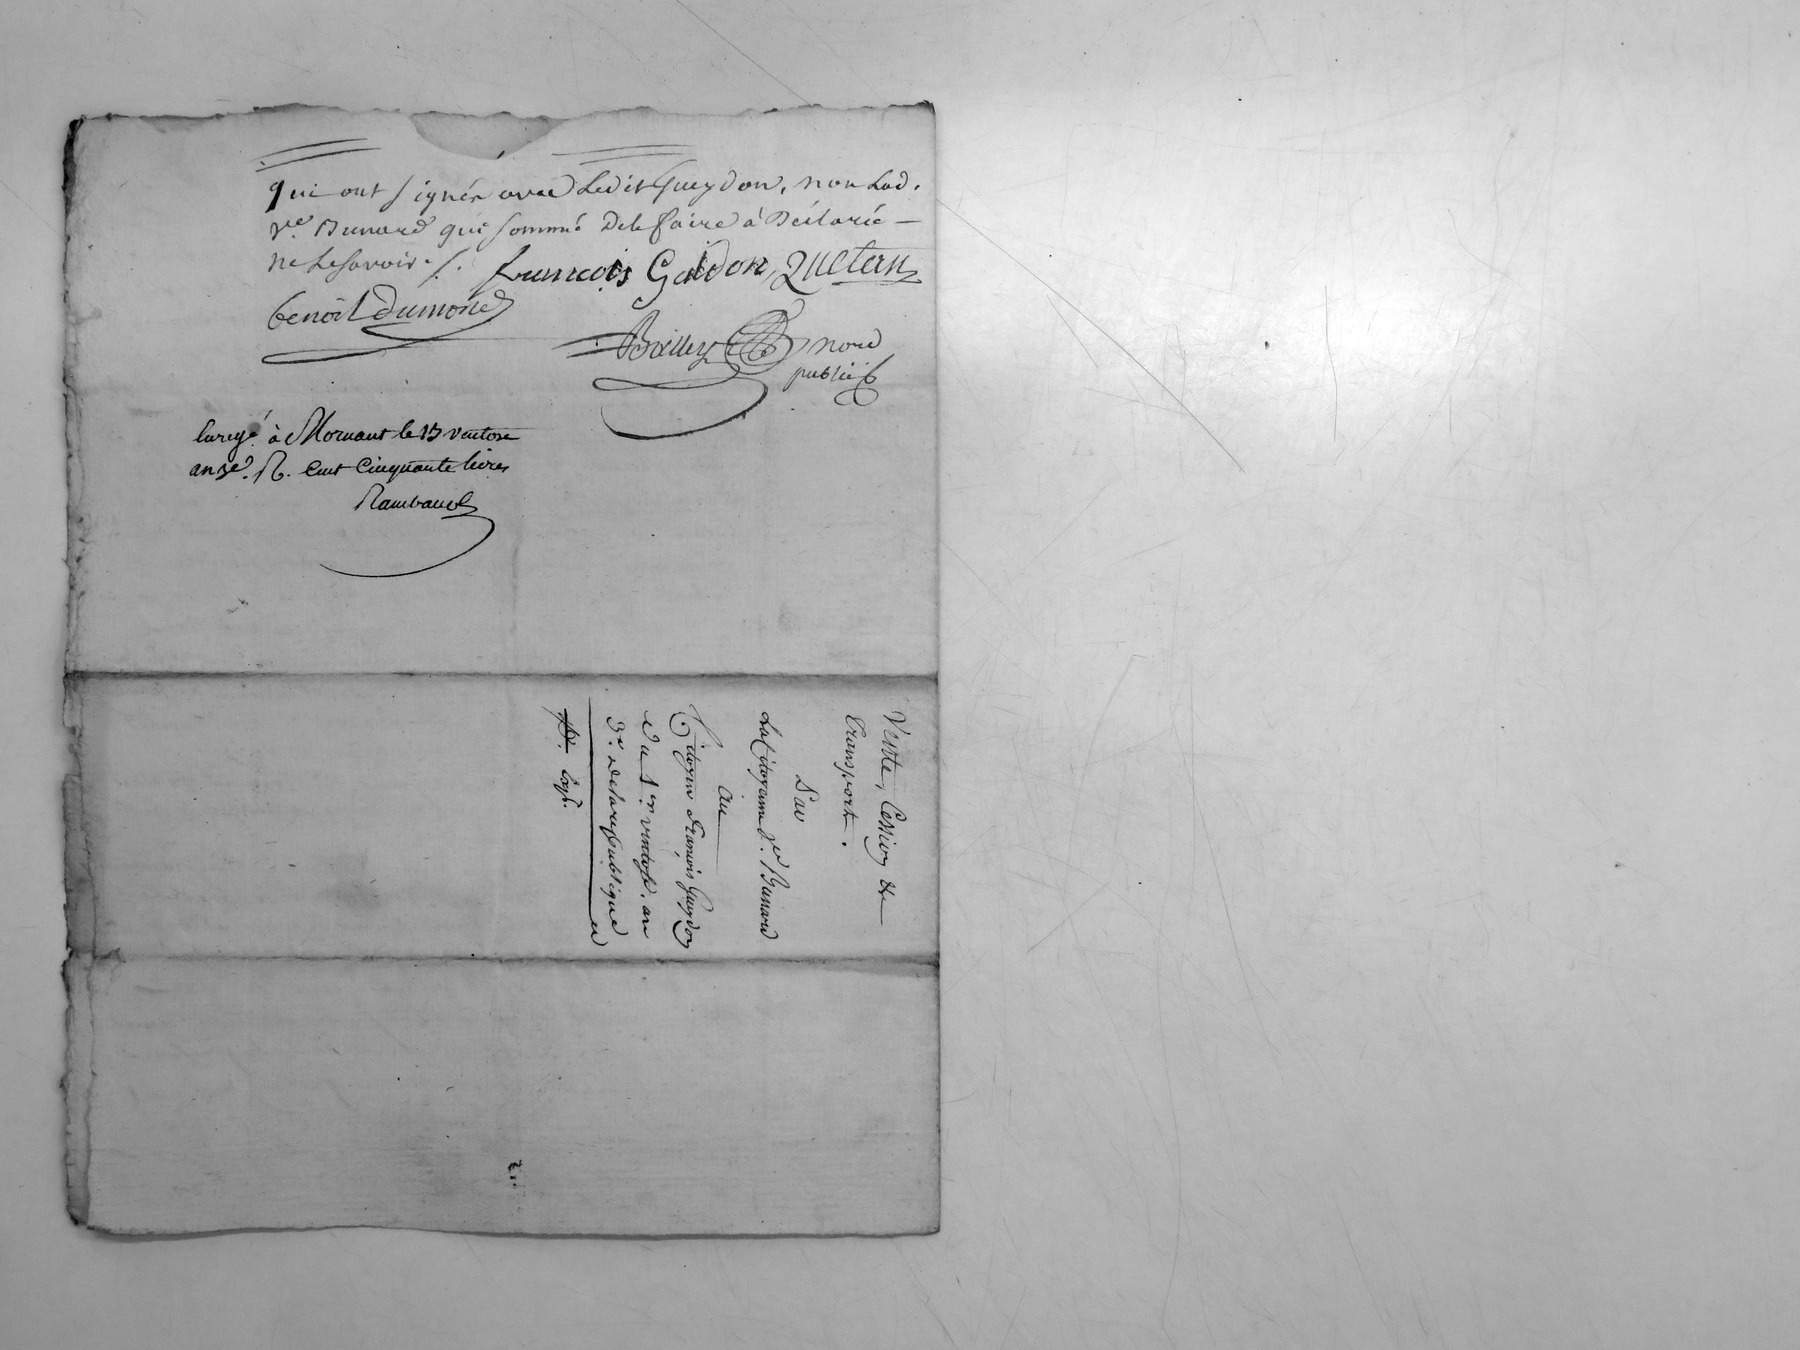 qui ont signés avec Ledit Gueydon, non Lad.
ve. Bunard qui sommé de le faire à Déclaré —
ne Le savoir ./.
francois Gaidon, Quetan
benoit dumond
Boiller nore
public
Enregé. à Mornant le 13 ventose
an 3e. R. Cent Cinquante livres
Rambaud
Vente, Cession &
transport.
Par
La Citoyenne ve. Bunard
au
Citoyen François Gueydon
Du 1er. ventose, an
3e. de la republique